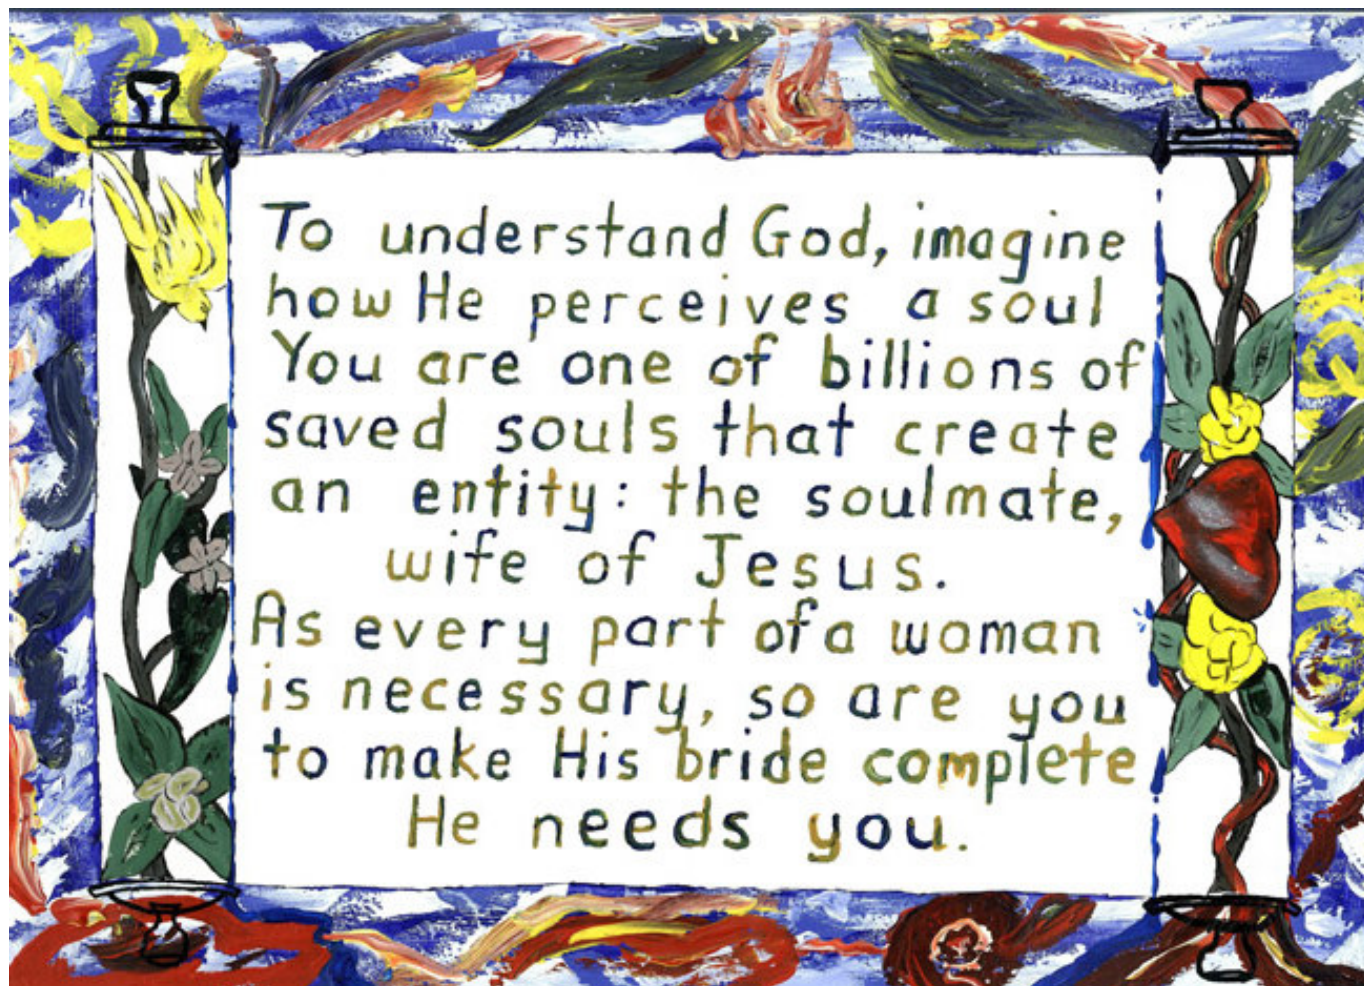 To understand God, imagine
how He perceives a soul
You are one of billions of
saved souls that create
an entity: the soulmate,
wife of Jesus.
As every part of a woman
is necessary, so are you
to make His bride complete
He needs you.